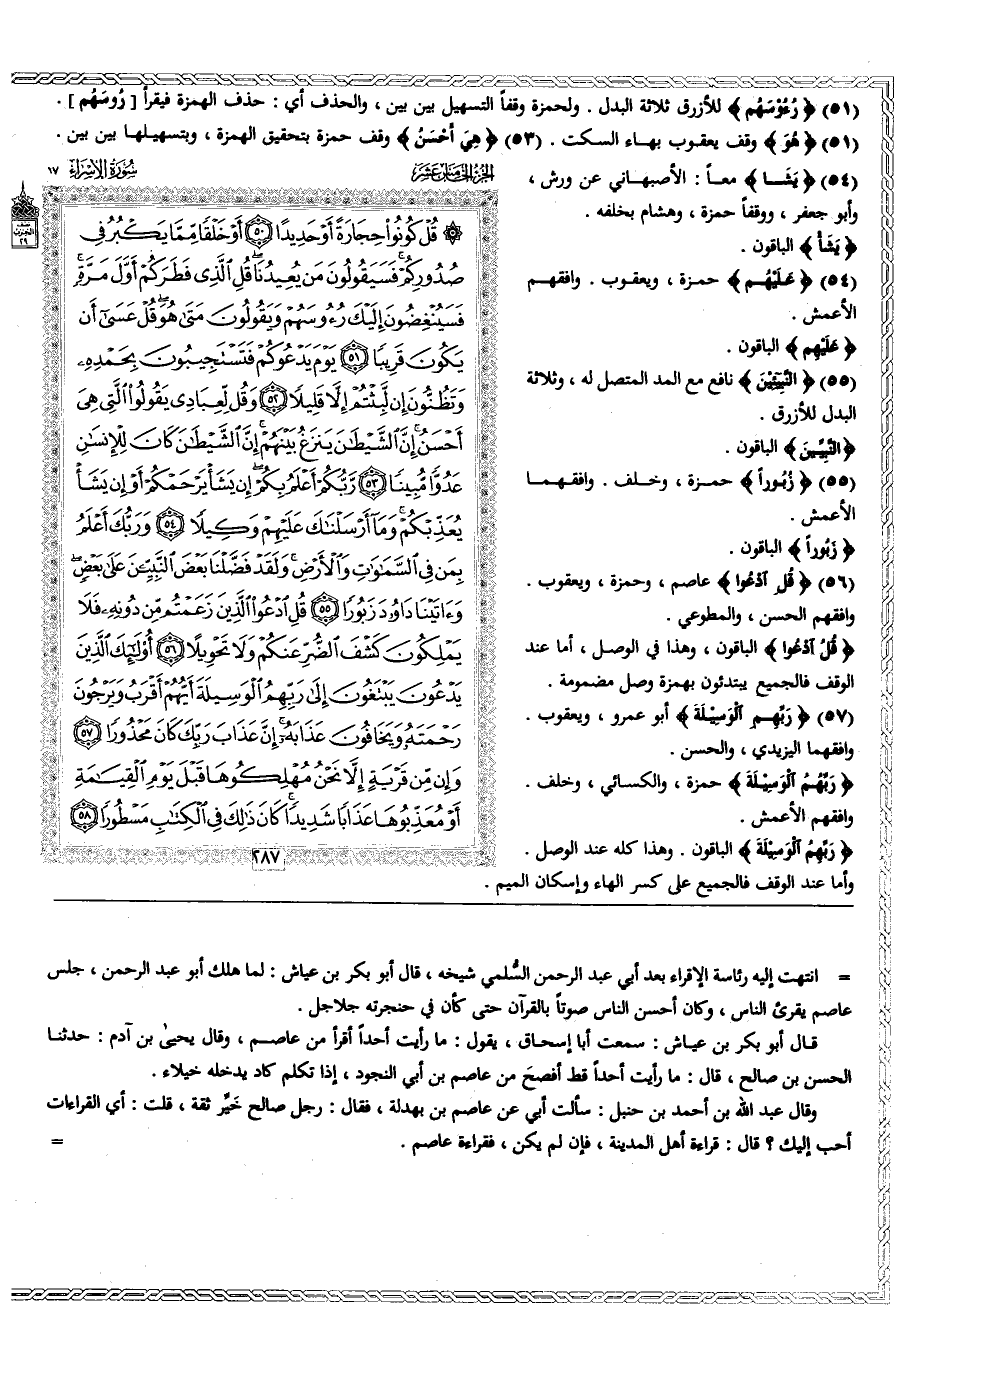 (٥١) ﴿ رُءُوسَهُم ﴾ للأزرق ثلاثة البدل . ولحمزة وقفاً التسهيل بين بين ، والحذف أي : حذف الهمزة فيقرأ [ رُوسَهُم ] .
(٥١) ﴿ هُوَ ﴾ وقف يعقوب بهاء السكت . (٥٣) ﴿ هِيَ أَحْسَنُ ﴾ وقف حمزة بتحقيق الهمزة ، وبتسهيلها بين بين .
(٥٤) ﴿ يَشَا ﴾ معاً : الأصبهاني عن ورش ،
وأبو جعفر ، ووقفاً حمزة ، وهشام بخلفه .
﴿ يَشَأْ ﴾ الباقون .
(٥٤) ﴿ عَلَيْهُم ﴾ حمزة ، ويعقوب . وافقهم
الأعمش .
﴿ عَلَيْهِم ﴾ الباقون .
(٥٥) ﴿ النَّبِيئِينَ ﴾ نافع مع المد المتصل له ، وثلاثة
البدل للأزرق .
﴿ النَّبِيِّينَ ﴾ الباقون .
(٥٥) ﴿ زُبُوراً ﴾ حمزة ، وخلف . وافقهما
الأعمش .
﴿ زَبُوراً ﴾ الباقون .
(٥٦) ﴿ قُلِ ٱدْعُوا ﴾ عاصم ، وحمزة ، ويعقوب .
وافقهم الحسن ، والمطوعي .
﴿ قُلُ ٱدْعُوا ﴾ الباقون ، وهذا في الوصل ، أما عند
الوقف فالجميع يبتدئون بهمزة وصل مضمومة .
(٥٧) ﴿ رَبِّهِمِ ٱلْوَسِيلَةَ ﴾ أبو عمرو ، ويعقوب .
وافقهما اليزيدي ، والحسن .
﴿ رَبِّهُمُ ٱلْوَسِيلَةَ ﴾ حمزة ، والكسائي ، وخلف .
وافقهم الأعمش .
﴿ رَبِّهِمُ ٱلْوَسِيلَةَ ﴾ الباقون . وهذا كله عند الوصل .
وأما عند الوقف فالجميع على كسر الهاء وإسكان الميم .
الجزء الخامس عشر
سورة الإسراء ١٧
نصف الحزب ٢٩
۞ قُلْ كُونُوا۟ حِجَارَةً أَوْ حَدِيدًا ٥٠ أَوْ خَلْقًا مِّمَّا يَكْبُرُ فِى
صُدُورِكُمْ ۚ فَسَيَقُولُونَ مَن يُعِيدُنَا ۖ قُلِ ٱلَّذِى فَطَرَكُمْ أَوَّلَ مَرَّةٍ ۚ
فَسَيُنْغِضُونَ إِلَيْكَ رُءُوسَهُمْ وَيَقُولُونَ مَتَىٰ هُوَ ۖ قُلْ عَسَىٰٓ أَن
يَكُونَ قَرِيبًا ٥١ يَوْمَ يَدْعُوكُمْ فَتَسْتَجِيبُونَ بِحَمْدِهِۦ
وَتَظُنُّونَ إِن لَّبِثْتُمْ إِلَّا قَلِيلًا ٥٢ وَقُل لِّعِبَادِى يَقُولُوا۟ ٱلَّتِى هِىَ
أَحْسَنُ ۚ إِنَّ ٱلشَّيْطَٰنَ يَنزَغُ بَيْنَهُمْ ۚ إِنَّ ٱلشَّيْطَٰنَ كَانَ لِلْإِنسَٰنِ
عَدُوًّا مُّبِينًا ٥٣ رَّبُّكُمْ أَعْلَمُ بِكُمْ ۖ إِن يَشَأْ يَرْحَمْكُمْ أَوْ إِن يَشَأْ
يُعَذِّبْكُمْ ۚ وَمَآ أَرْسَلْنَٰكَ عَلَيْهِمْ وَكِيلًا ٥٤ وَرَبُّكَ أَعْلَمُ
بِمَن فِى ٱلسَّمَٰوَٰتِ وَٱلْأَرْضِ ۗ وَلَقَدْ فَضَّلْنَا بَعْضَ ٱلنَّبِيِّۦنَ عَلَىٰ بَعْضٍ ۖ
وَءَاتَيْنَا دَاوُۥدَ زَبُورًا ٥٥ قُلِ ٱدْعُوا۟ ٱلَّذِينَ زَعَمْتُم مِّن دُونِهِۦ فَلَا
يَمْلِكُونَ كَشْفَ ٱلضُّرِّ عَنكُمْ وَلَا تَحْوِيلًا ٥٦ أُو۟لَٰٓئِكَ ٱلَّذِينَ
يَدْعُونَ يَبْتَغُونَ إِلَىٰ رَبِّهِمُ ٱلْوَسِيلَةَ أَيُّهُمْ أَقْرَبُ وَيَرْجُونَ
رَحْمَتَهُۥ وَيَخَافُونَ عَذَابَهُۥٓ ۚ إِنَّ عَذَابَ رَبِّكَ كَانَ مَحْذُورًا ٥٧
وَإِن مِّن قَرْيَةٍ إِلَّا نَحْنُ مُهْلِكُوهَا قَبْلَ يَوْمِ ٱلْقِيَٰمَةِ
أَوْ مُعَذِّبُوهَا عَذَابًا شَدِيدًا ۚ كَانَ ذَٰلِكَ فِى ٱلْكِتَٰبِ مَسْطُورًا ٥٨
٢٨٧
= انتهت إليه رئاسة الإقراء بعد أبي عبد الرحمن السُّلمي شيخه ، قال أبو بكر بن عياش : لما هلك أبو عبد الرحمن ، جلس
عاصم يقرئ الناس ، وكان أحسن الناس صوتاً بالقرآن حتى كأن في حنجرته جلاجل .
قال أبو بكر بن عياش : سمعت أبا إسحاق ، يقول : ما رأيت أحداً أقرأ من عاصم ، وقال يحيىٰ بن آدم : حدثنا
الحسن بن صالح ، قال : ما رأيت أحداً قط أفصحَ من عاصم بن أبي النجود ، إذا تكلم كاد يدخله خيلاء .
وقال عبد الله بن أحمد بن حنبل : سألت أبي عن عاصم بن بهدلة ، فقال : رجل صالح خَيِّر ثقة ، قلت : أي القراءات
أحب إليك ؟ قال : قراءة أهل المدينة ، فإن لم يكن ، فقراءة عاصم . =